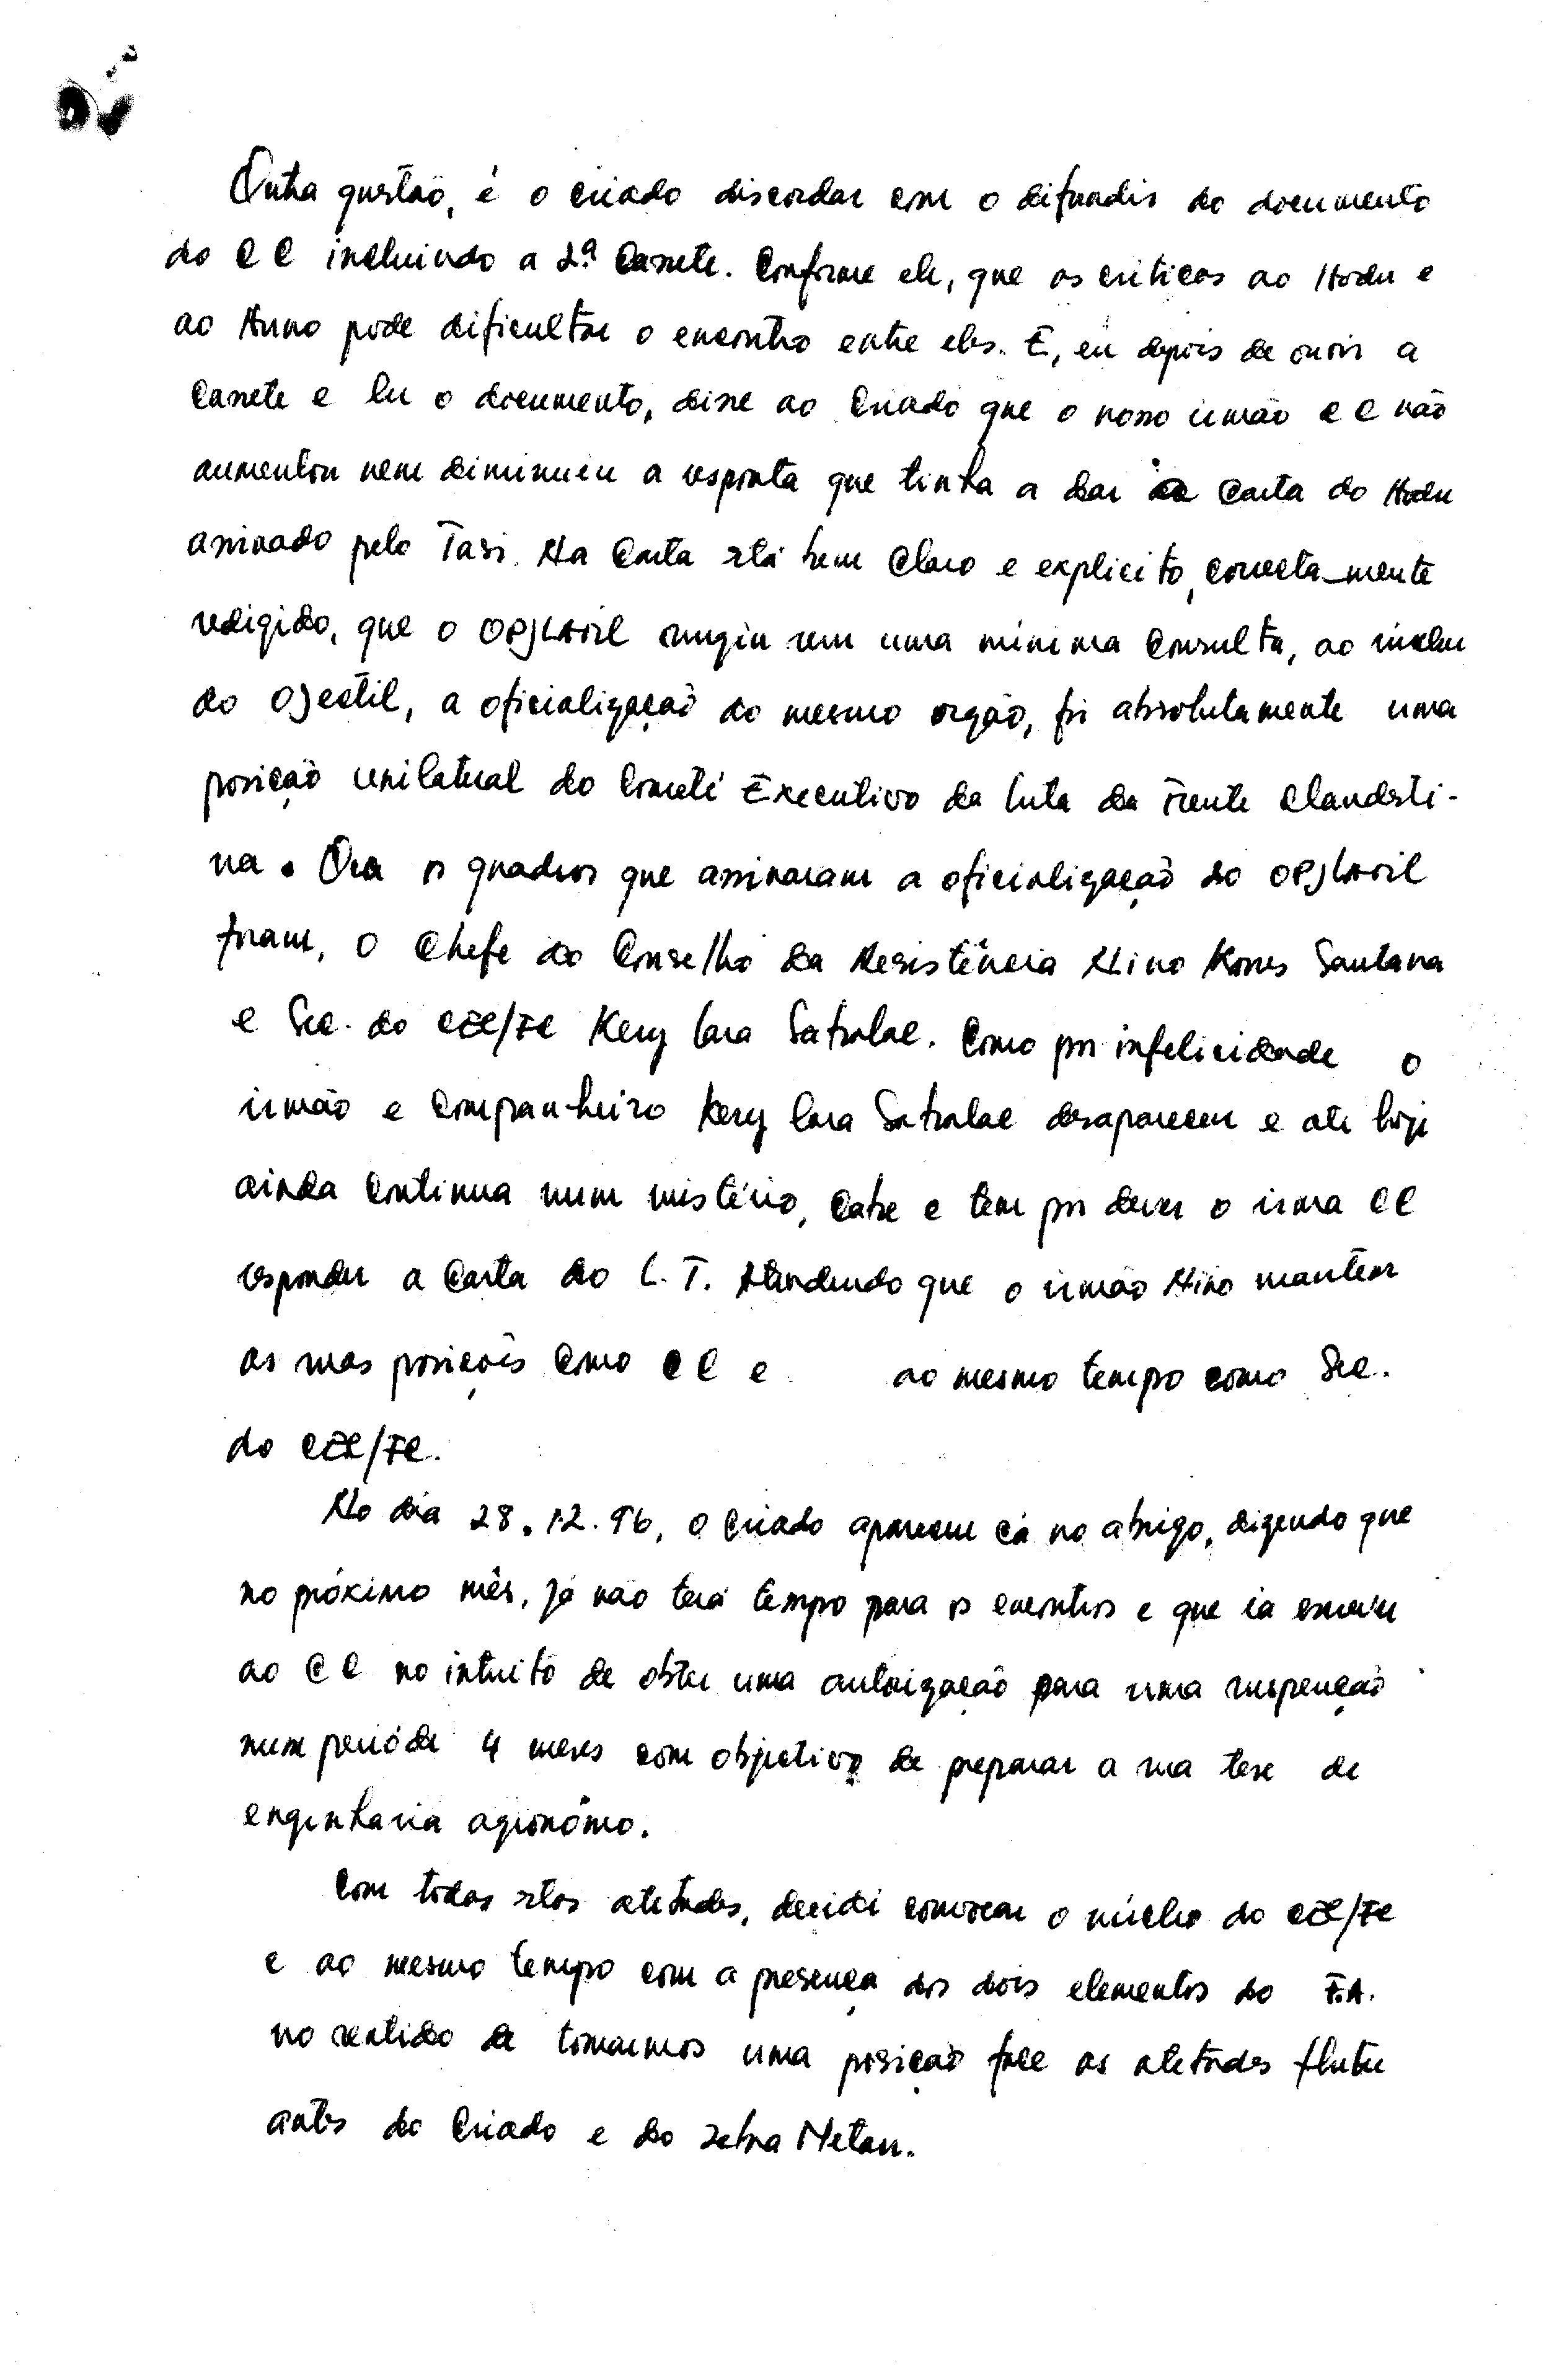 Outra questão, é o Criado discordar com o difundir do documento
do CC incluindo a 2ª Cassete. Conforme ele, que as críticas ao Hodu e
ao Hunu pode dificultar o encontro entre eles. E, eu depois de ouvir a
Cassete e ler o documento, disse ao Criado que o nosso irmão CC não
aumentou nem diminuiu a resposta que tinha a dar a Carta do Hodu
assinado pelo Tasi. Na Carta está bem claro e explicito, correcta-mente
redigido, que o OPJLATIL surgiu sem uma minima Consulta, ao
do OJECTIL, a oficialização do mesmo orgão, foi absolutamente uma
posição unilateral do Comité Executivo da luta da Frente Clandesti-
na. Ora os quadros que assinaram a oficialização do OPJLATIL
foram, o Chefe do Conselho da Resistência Nino Konis Santana
e Sec. do CEL/FC Kery Lara Sabalae. Como por infelicidade o
irmão e Companheiro Kery Lara Sabalae desapareceu e até hoje
ainda continua num mistério, Cabe e tem por dever o irmã CC
responder a Carta do L.T. Atendendo que o irmão Nino mantem
as suas posições como CC e ao mesmo tempo como Sec.
do CEL/FC.
No dia 28.12.96, o Criado apareceu cá no abrigo, dizendo que
no próximo mês, já não terá tempo para os encontros e que ia escrever
ao CC no intuito de obter uma autorização para uma suspenção
num perióde 4 meses com objetivo de preparar a sua tese de
engenharia agronômo.
Com todas estas atetudes, decidi convocar o núcleo do CEL/FC
e ao mesmo tempo com a presença dos dois elementos do F.A.
no sentido de tomarmos uma posição face as atetudes flutu
antes do Criado e do Metan.